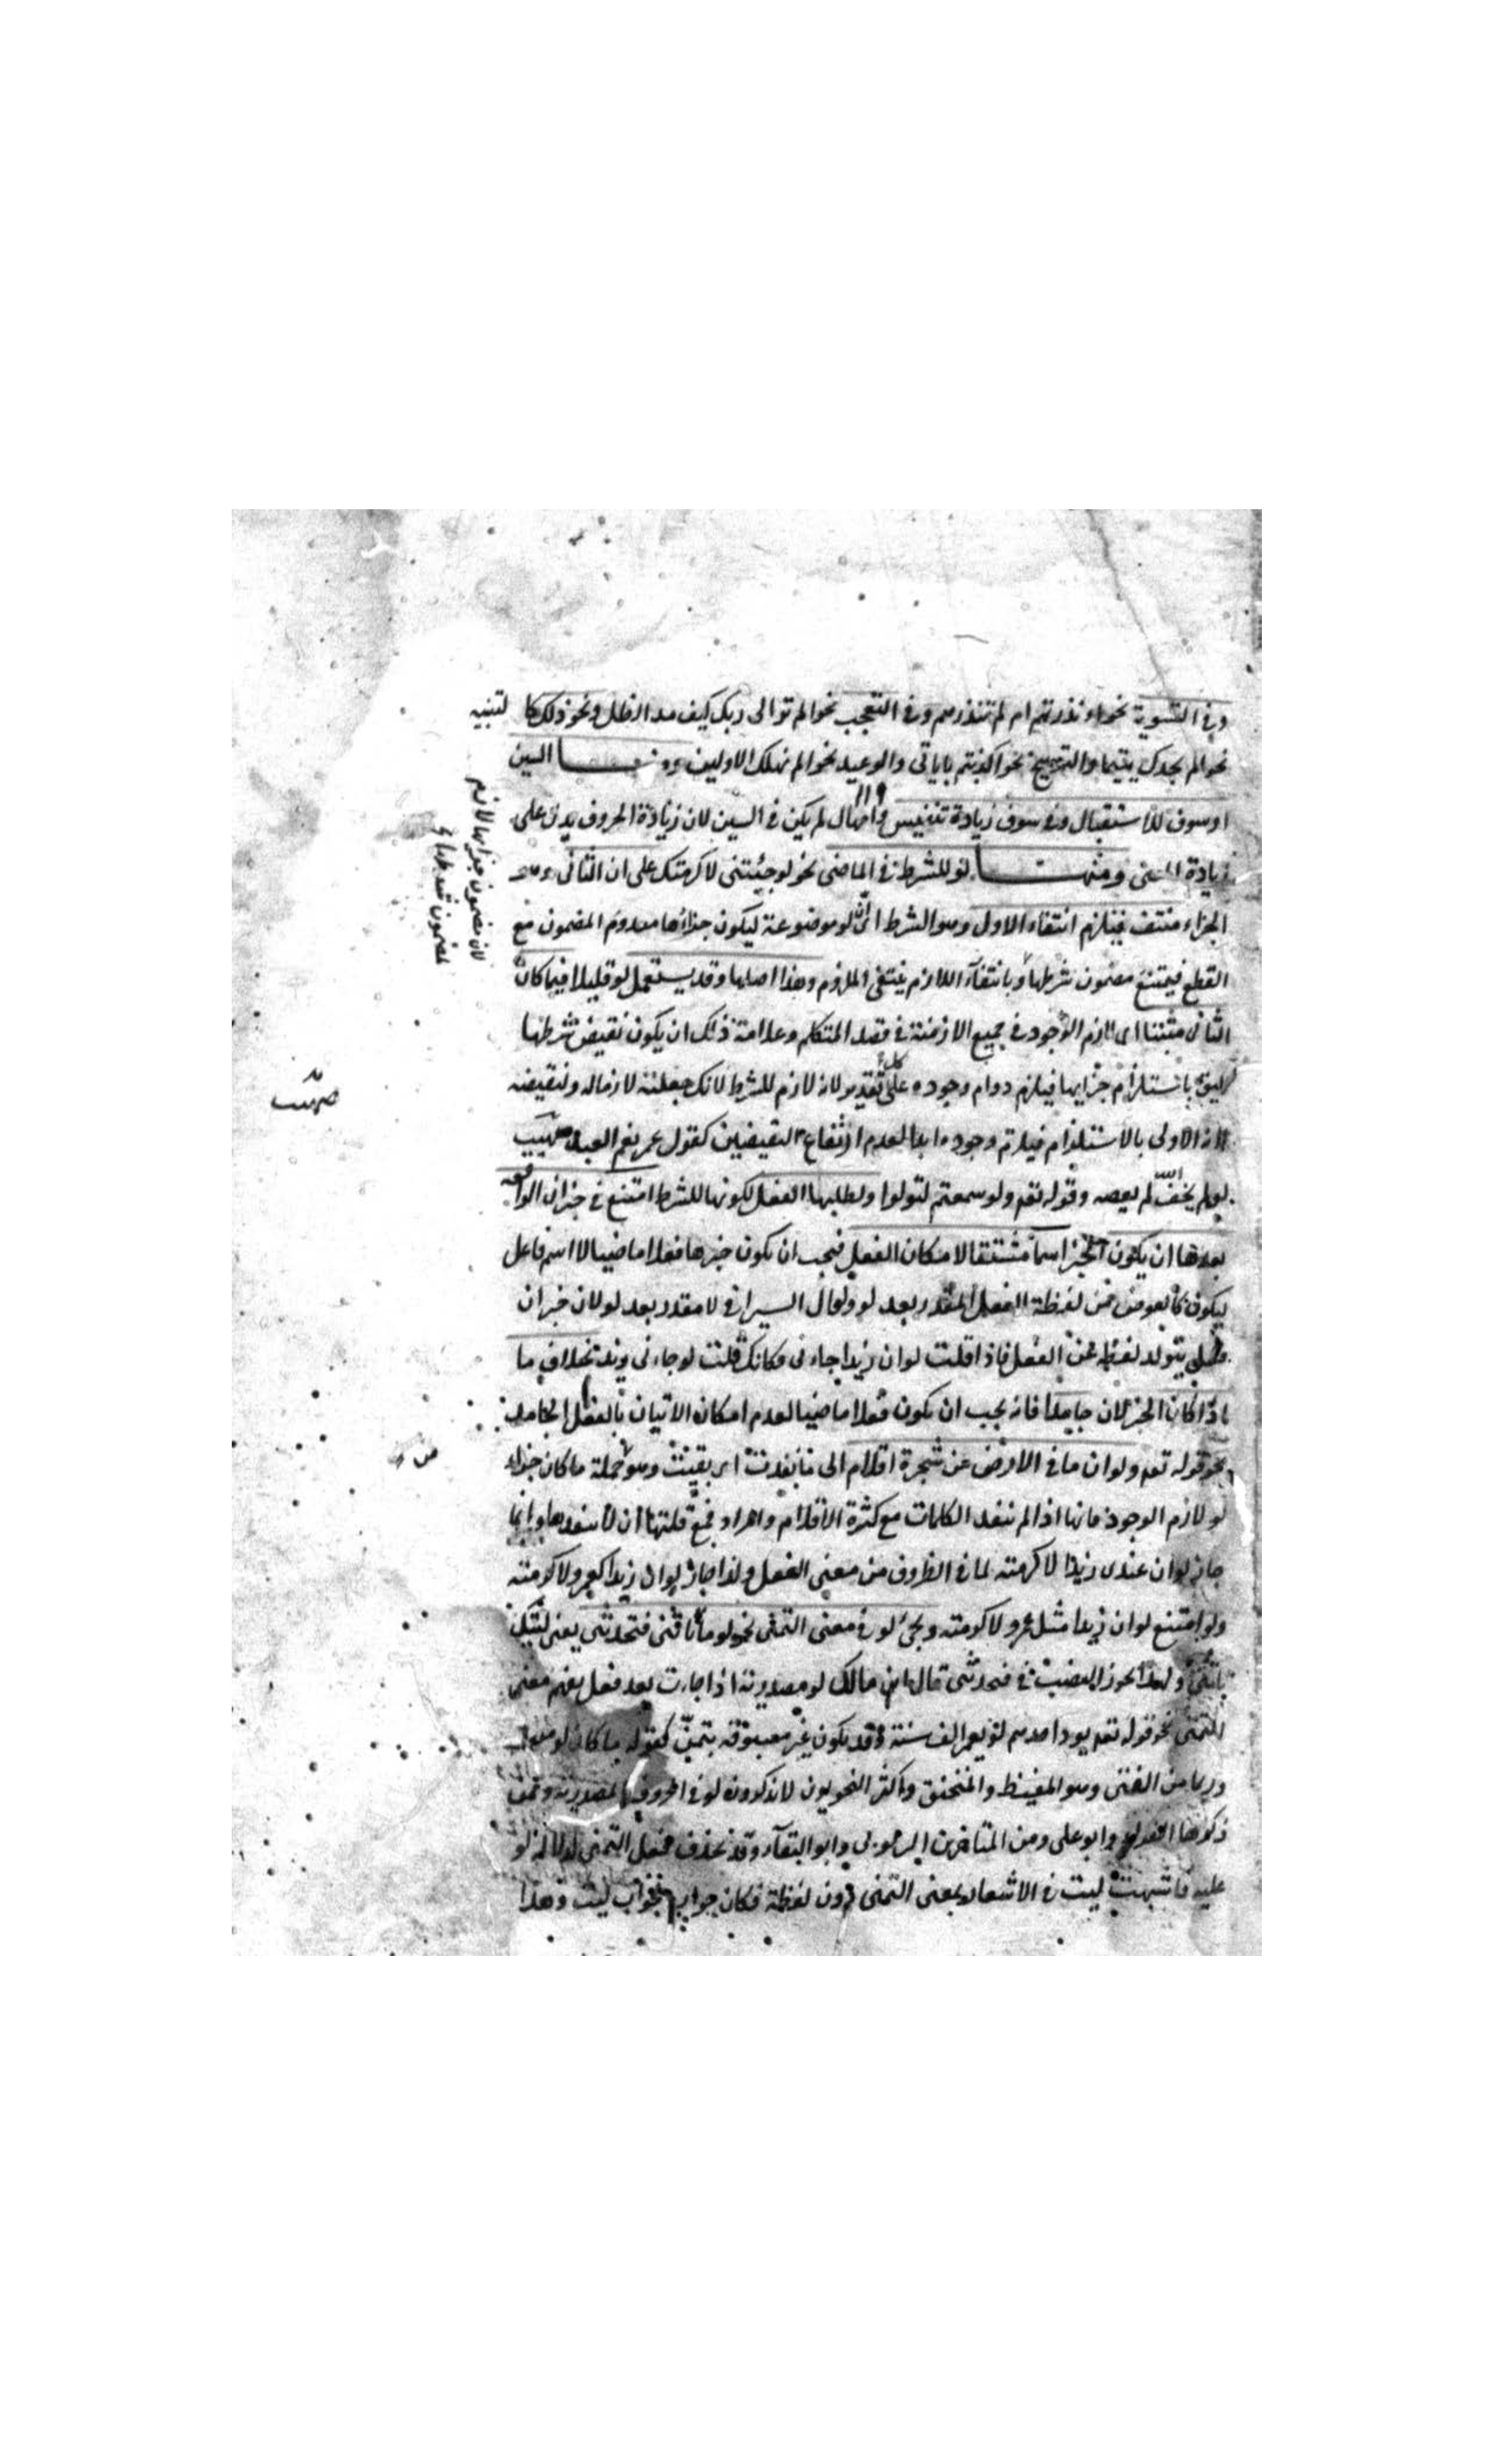 وفي التسوية نحو ءانذرتهم ام لم تنذرهم وفي التعجب نحو الم تر الى ربك كيف مد الظل ونحو ذلك كالتنبيه
نحو الم يجدك يتيما والتوبيخ نحو اكذبتم باياتى والوعيد نحو الم نهلك الاولين ومنها السين
او سوف للاستقبال وفى سوف زيادة تنفيس وامهال لم يكن فى السين لان زيادة الحروف يدل على
زيادة المعنى ومنها لو للشرط فى الماضى نحو لو جئتنى لاكرمتك على ان الثانى وهو
الجزاء منتف فيلزم انتفاء الاول وهو الشرط لو موضوعة ليكون جزاؤها معدوم المضمون مع
القطع فيمتنع مضمون شرطها وبانتفآء اللازم ينتفى الملزوم وهذا اصلها وقد يستعمل لو قليلا فيما كان
الثانى مثبتا اى لازم الوجود فى جميع الازمنة فى قصد المتكلم وعلامة ذلك ان يكون نقيض شرطها
اليق باستلزام جزايها فيلزم دوام وجوده على كل تقدير لانه لازم للشرط لانك جعلته لازما له ولنقيضه
لانه الاولى بالاستلزام فيلزم وجوده ابدا لعدم ارتفاع النقيضين كقول عمر نعم العبد صهيب
لو لم يخف الله لم يعصه وقوله تعم ولو سمعتم لتولوا ولطلبها الفعل لكونها للشرط امتنع فى خبر ان الواقعة
بعدها ان يكون الخبر اسما مشتقا لامكان الفعل فيجب ان يكون خبرها فعلا ماضيا لا اسم فاعل
ليكون كالعوض من لفظة الفعل المقدر بعد لو وقال السيرافى لا مقدر بعد لو لان خبر ان
يتولد لفظه عن الفعل فاذا قلت لو ان زيدا جاءنى فكانك قلت لو جاءنى زيد بخلاف ما
اذا كان الخبر لان جامدا فانه يجب ان يكون فعلا ماضيا لعدم امكان الاتيان بالفعل الجامد
نحو قوله تعم ولو ان ما فى الارض من شجرة اقلام الى ما نفدت اى بقيت وهو جملة ما كان جزاء
لو لازم الوجود فانها اذا لم تنفد الكلمات مع كثرة الاقلام والمداد فمع قلتها ان لا تنفدها وانما
جاز لو ان عندى زيدا لاكرمته لما فى الظروف من معنى الفعل ولذا جاز لو ان زيدا كعمرو لاكرمته
ولو امتنع لو ان زيدا مثل عمرو لاكرمته ويجئ لو فى معنى التمنى نحو لو ما تأتنى فتحدثنى يعنى ليتك
تاتنى ولهذا يجوز النصب فى فتحدثنى قال ابن مالك لو مصدرية اذا جاءت بعد فعل يفهم معنى
التمنى نحو قوله تعم يود احدهم لو يعمر الف سنة وقد يكون غير مسبوقة بتمن كقوله ما كان لو مننت
وربما من الفتى وهو المغيظ والمحنق واكثر النحويون لا يذكرون لو فى الحروف المصدرية وممن
ذكرها الفراء وابو على ومن المتاخرين وابو البقآء وقد يحذف فعل التمنى لدلالة لو
عليه فاشبهت ليت فى الاشعار بمعنى التمنى دون لفظة فكان جوابه كجواب ليت وهذا
لان مضمون جزايها لازم
لمضمون شرطها
صهيب